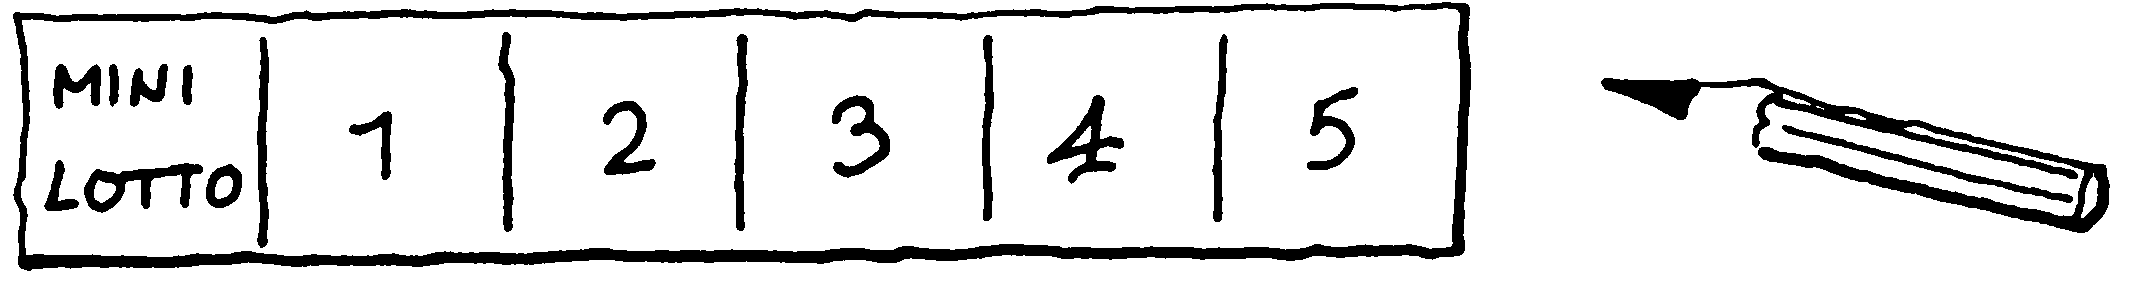 MINI
LOTTO
1 2 3 4 5